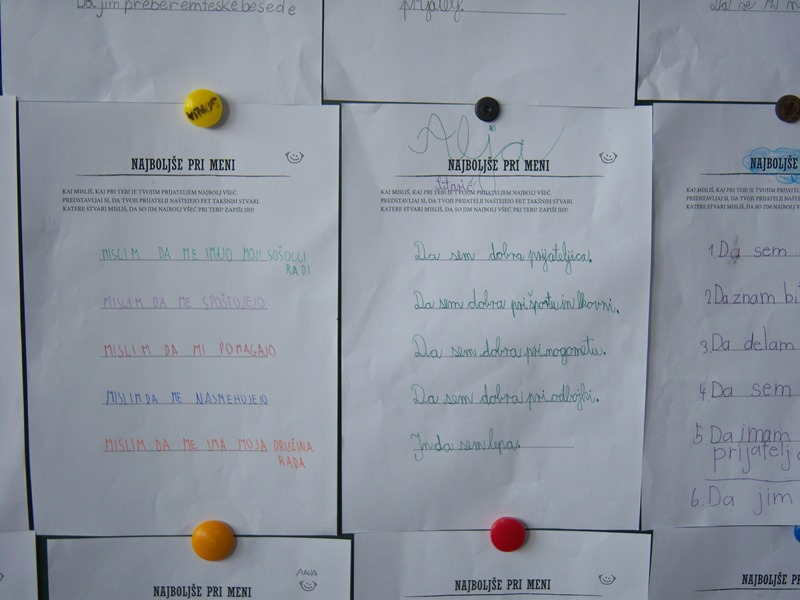 Da jim preberem teške besede
NAJBOLJŠE PRI MENI
KAJ MISLIŠ, KAJ PRI TEBI JE TVOJIM PRIJATELJEM NAJBOLJ VŠEČ.
PREDSTAVLJAJ SI, DA TVOJI PRIJATELJI NAŠTEJEJO PET TAKŠNIH STVARI.
KATERE STVARI MISLIŠ, DA SO JIM NAJBOLJ VŠEČ PRI TEBI? ZAPIŠI JIH!
MISLIM DA ME IMAJO MOJI SOŠOLCI
RADI
MISLIM DA ME SPOŠTUJEJO
MISLIM DA MI POMAGAJO
MISLIM DA ME NASMEHUJEJO
MISLIM DA ME IMA MOJA DRUŽINA
RADA
Alja
NAJBOLJŠE PRI MENI
KAJ MISLIŠ, KAJ PRI TEBI JE TVOJIM PRIJATELJEM NAJBOLJ VŠEČ.
PREDSTAVLJAJ SI, DA TVOJI PRIJATELJI NAŠTEJEJO PET TAKŠNIH STVARI.
KATERE STVARI MISLIŠ, DA SO JIM NAJBOLJ VŠEČ PRI TEBI? ZAPIŠI JIH!
Da sem dobra prijateljica.
Da sem dobra pri športu in likovni.
Da sem dobra pri nogometu.
Da sem dobra pri odbojki.
In da sem lepa.
NAJBOLJŠE
KAJ MISLIŠ, KAJ PRI TEBI
PREDSTAVLJAJ SI, DA TVOJI
KATERE STVARI MISLIŠ, DA
1 Da sem
2 Da znam
3. Da delam
4. Da sem
5 Da imam
prijatelj
6. Da jim
NAJBOLJŠE PRI MENI
NAJBOLJŠE PRI MENI
NAJBOLJŠE